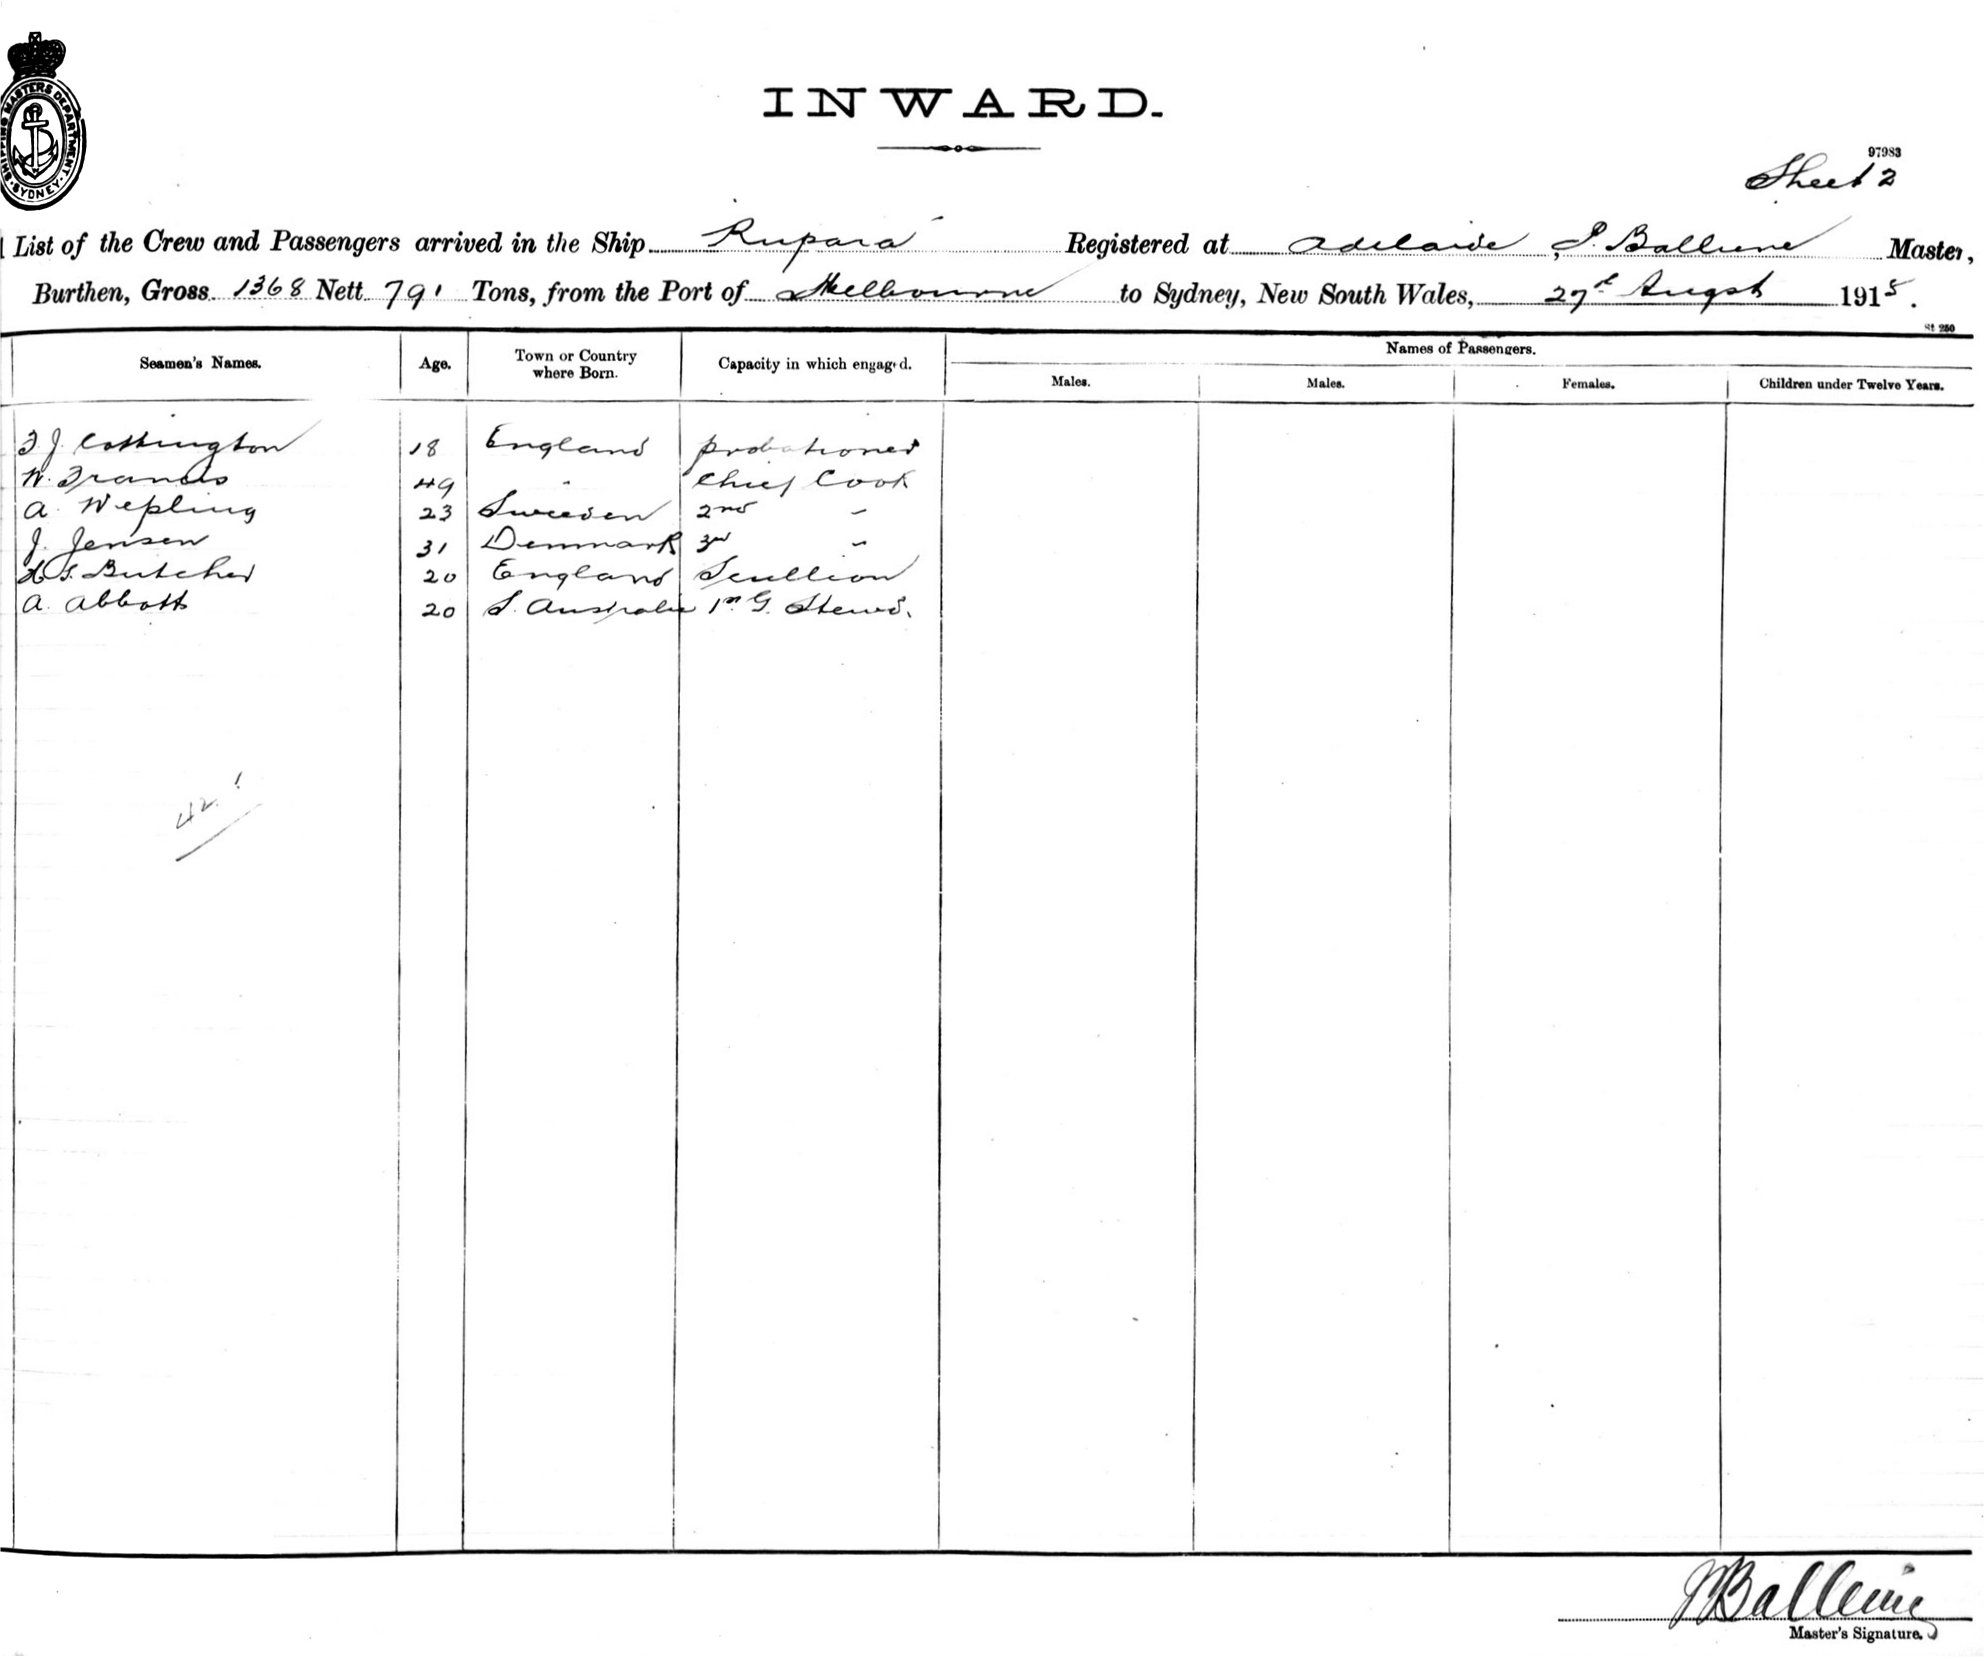 SHIPPING MASTERS DEPARTMENT SYDNEY
INWARD.
97983
Sheet 2
List of the Crew and Passengers arrived in the Ship Rupara Registered at Adelaide, Balleine Master,
Burthen, Gross 1368 Nett 791 Tons, from the Port of Melbourne to Sydney, New South Wales, 27th Augst 1915.
St 250
Seamen's Names. Age. Town or Country where Born. Capacity in which engaged. Names of Passengers.
Males. Males. Females. Children under Twelve Years.
J. Cottington 18 England probationer
W. Francis 49 " Chief Cook
A. Wepling 23 Sweeden 2nd "
J. Jensen 31 Denmark 3rd "
H S. Butcher 20 England Scullion
A. Abbott 20 S. Australia 1st G. Stewd.
42
Balleine
Master's Signature.